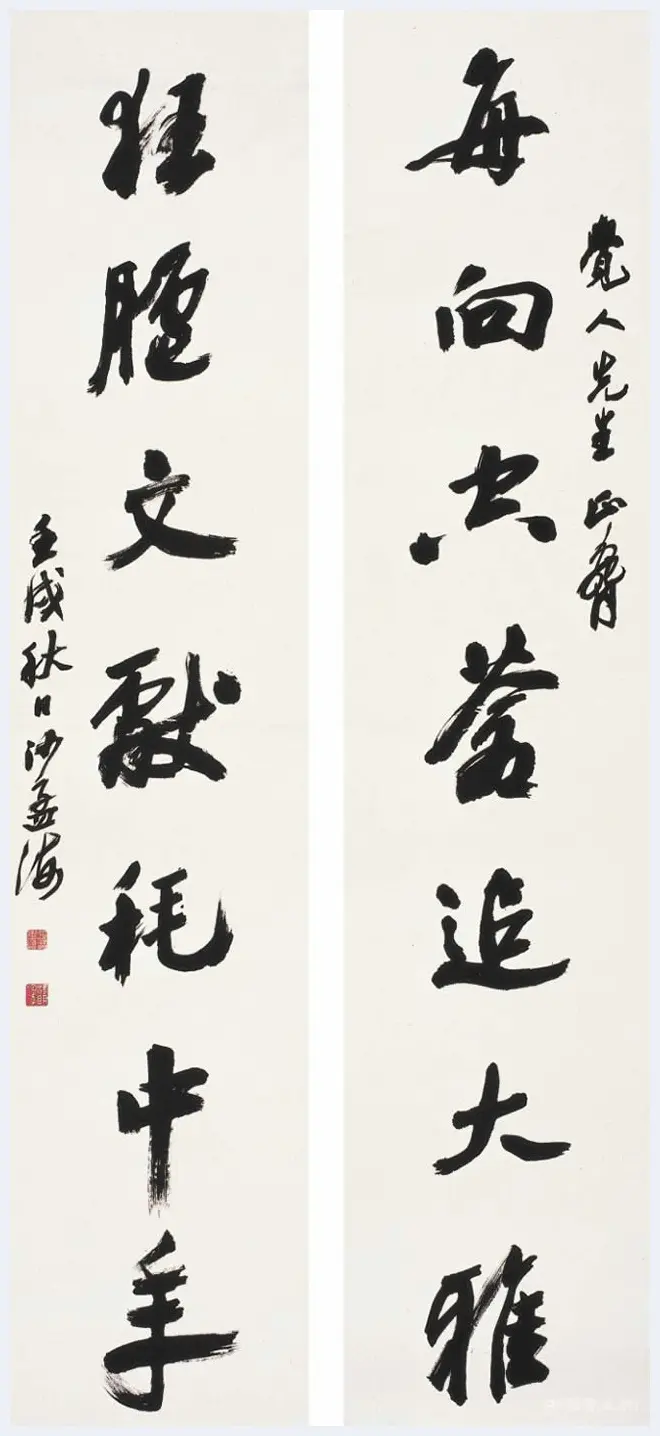 覺人先生正
每向空蒼追大雅
狂臚文獻耗中年
壬戌秋日沙孟海